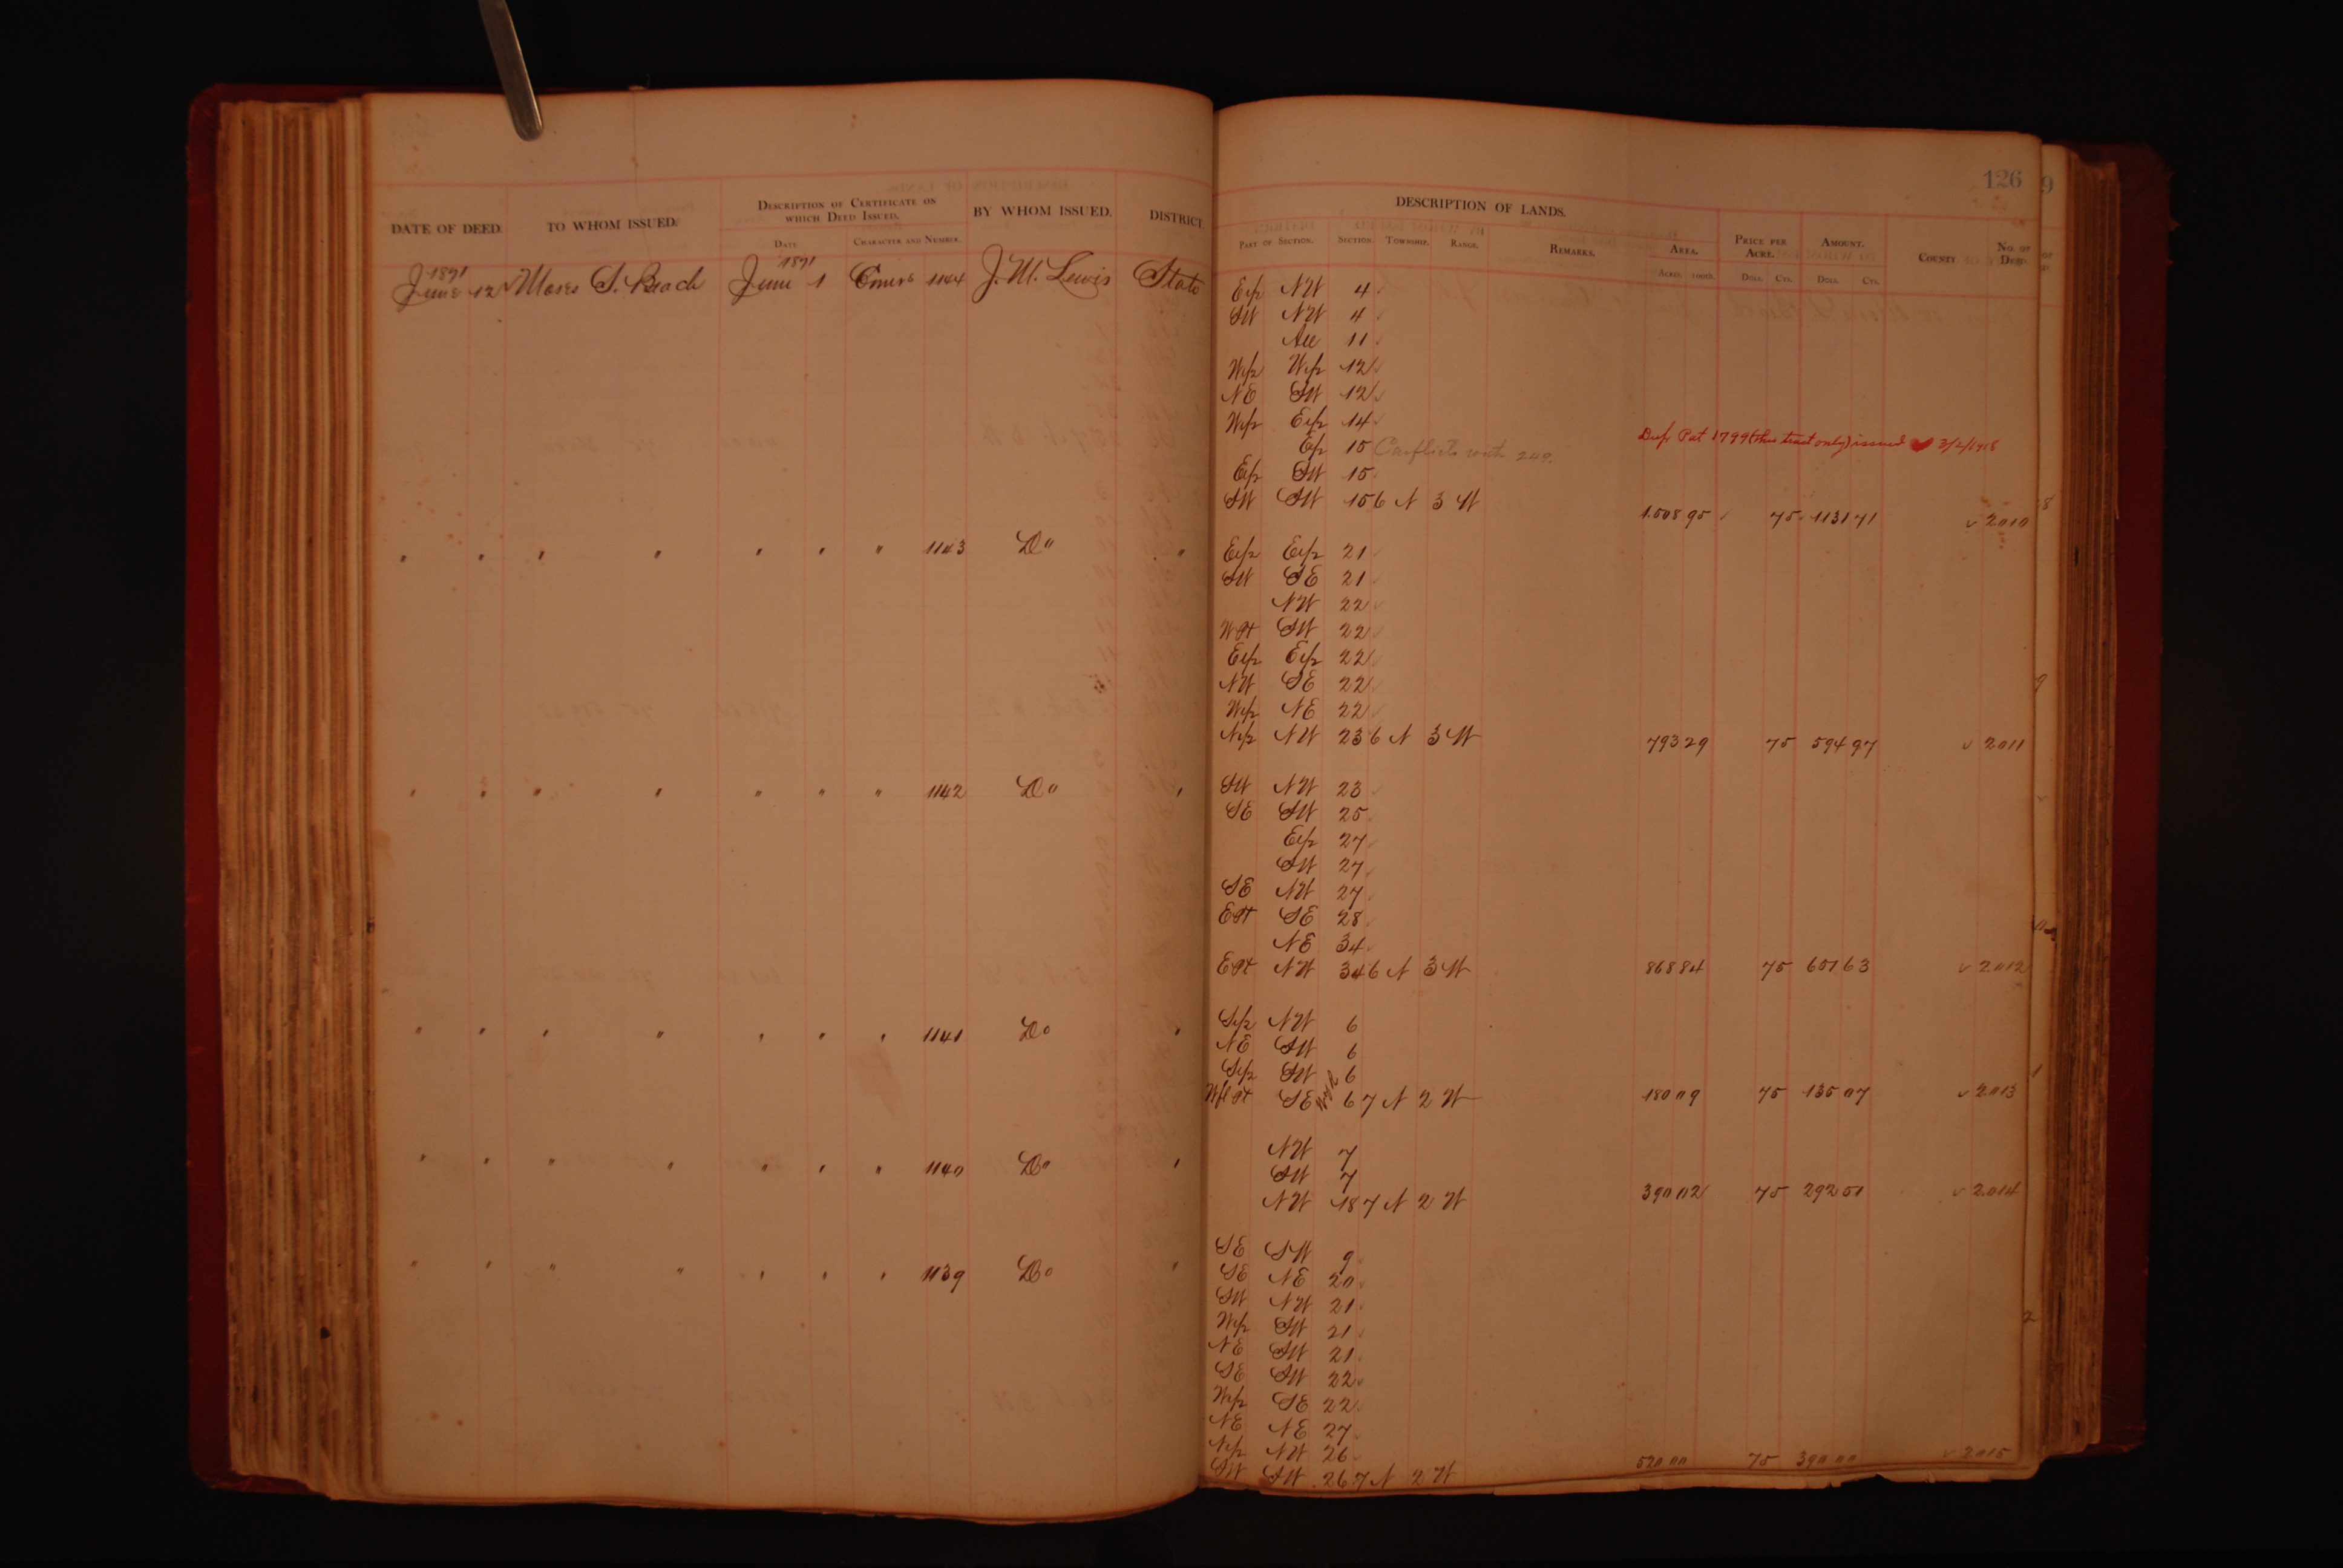 126
DATE OF DEED. TO WHOM ISSUED. DESCRIPTION OF CERTIFICATE ON WHICH DEED ISSUED. BY WHOM ISSUED. DISTRICT.
DATE CHARACTER AND NUMBER.
DESCRIPTION OF LANDS.
PART OF SECTION. SECTION. TOWNSHIP. RANGE. REMARKS. AREA. PRICE PER ACRE. AMOUNT. COUNTY NO. OF DEED.
ACRES. 100TH. DOLL. CTS. DOLL. CTS.
1871 June 12 Moses S. Beach 1871 June 1 1144 J. M. Lewis State
E½ NW 4
SW NW 4
All 11
W½ W½ 12
NE SW 12
W½ E½ 14
E½ 15 Conflicts with 249. Dup Pat 1799 (this tract only) issued 3/2/1918
E½ SW 15
SW SW 15 6 N 3 W 1508 95 75 1131 71 2010
" " " " " " " 1143 Do "
E½ E½ 21
SW SE 21
NW 22
W pt SW 22
E½ E½ 22
NW SE 22
W½ NE 22
N½ NW 23 6 N 3 W 793 29 75 594 97 2011
" " " " " " " 1142 Do "
SW NW 23
SE SW 25
E½ 27
SW 27
SE NW 27
E pt SE 28
NE 34
E pt NW 34 6 N 3 W 868 84 75 651 63 2012
" " " " " " " 1141 Do "
S½ NW 6
NE SW 6
S½ SW 6
SE 6 7 N 2 W 180 09 75 135 07 2013
" " " " " " " 1140 Do "
NW 7
SW 7
NW 18 7 N 2 W 390 02 75 292 51 2014
" " " " " " " 1139 Do "
SE SW 9
SE NE 20
SW NW 21
W½ SW 21
NE SW 21
SE SW 22
W½ SE 22
NE NE 27
N½ NW 26
SW SW 26 7 N 2 W 520 00 75 390 00 2015